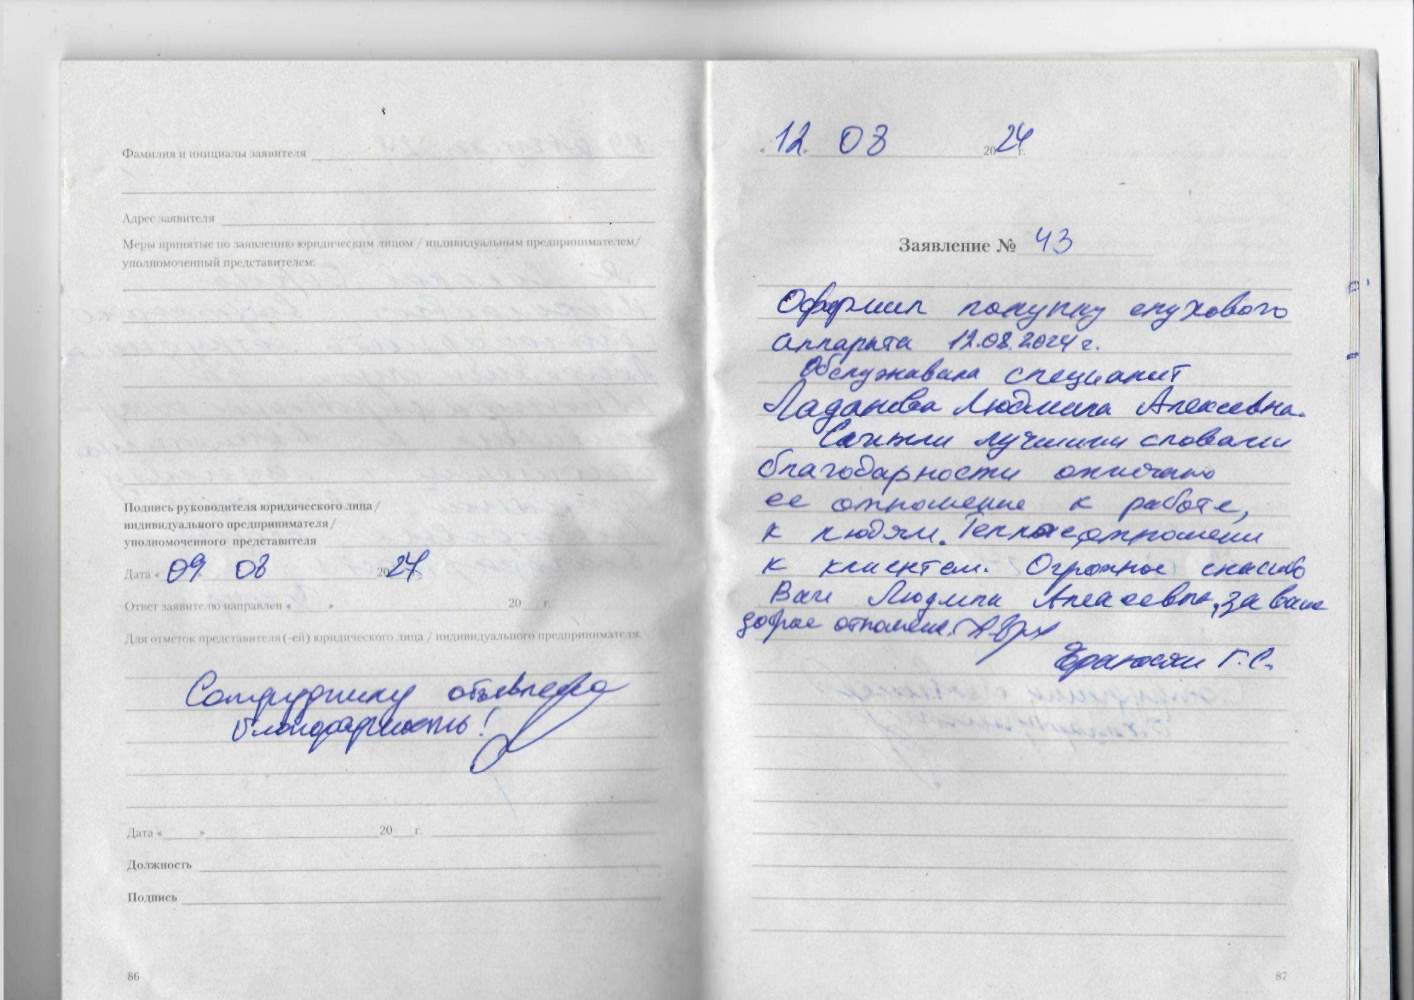 Фамилия и инициалы заявителя
Адрес заявителя
Меры принятые по заявлению юридическим лицом / индивидуальным предпринимателем/
уполномоченный представителем:
Подпись руководителя юридического лица /
индивидуального предпринимателя /
уполномоченного представителя
Дата « 09. 08 2024
Ответ заявителю направлен « » 20 г.
Для отметок представителя (-ей) юридического лица / индивидуального предпринимателя:
Сотруднику объявлена
благодарность!
Дата « » 20 г.
Должность
Подпись
86
12. 08 2024 г.
Заявление № 43
Оформил покупку слухового
аппарата 12.08.2024 г.
Обслуживала специалит
Ладанова Людмила Алексеевна.
Самыми лучшими словами
благодарности отмечаю
ее отношение к работе,
к людям. Теплое отношени
к клиентам. Огромное спасибо
Вам Людмила Алексеевна, за ваше
доброе отношение.
Г.С.
87